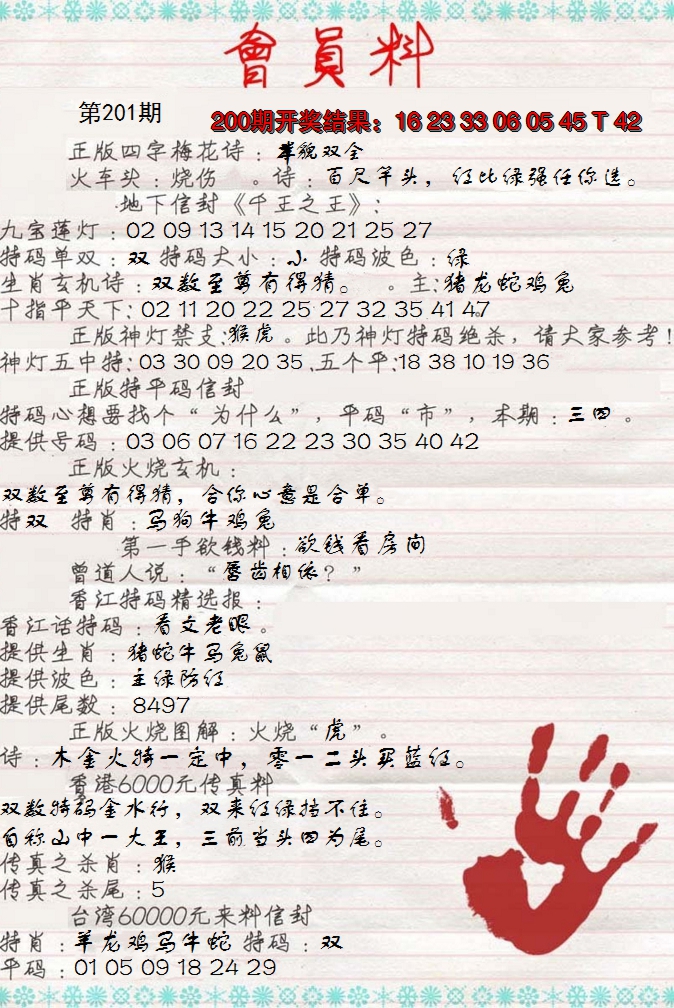 會員料
第201期
200期开奖结果：16 23 33 06 05 45 T 42
正版四字梅花诗：举貌双全
火车头：烧伤 。诗：百尺竿头，红比绿强任你选。
地下信封《千王之王》：
九宝莲灯：02 09 13 14 15 20 21 25 27
特码单双：双 特码大小：小 特码波色：绿
生肖玄机诗：双数至尊有得猜。 。主：猪龙蛇鸡兔
十指平天下：02 11 20 22 25 27 32 35 41 47
正版神灯禁支：猴虎。此乃神灯特码绝杀，请大家参考！
神灯五中特：03 30 09 20 35 .五个平：18 38 10 19 36
正版特平码信封
特码心想要找个“为什么”，平码“市”，本期：三四。
提供号码：03 06 07 16 22 23 30 35 40 42
正版火烧玄机：
双数至尊有得猜，合你心意是合单。
特双 特肖：马狗牛鸡兔
第一手欲钱料：欲钱看房间
曾道人说：“唇齿相依？”
香江特码精选报：
香江话特码：看文老眼。
提供生肖：猪蛇牛马兔鼠
提供波色：主绿防红
提供尾数：8497
正版火烧图解：火烧“虎”。
诗：木金火特一定中，零一二头买蓝红。
香港6000元传真料
双数特码金水行，双来红绿挡不住。
自称山中一大王，三前当头四为尾。
传真之杀肖：猴
传真之杀尾：5
台湾60000元来料信封
特肖：羊龙鸡马牛蛇 特码：双
平码：01 05 09 18 24 29